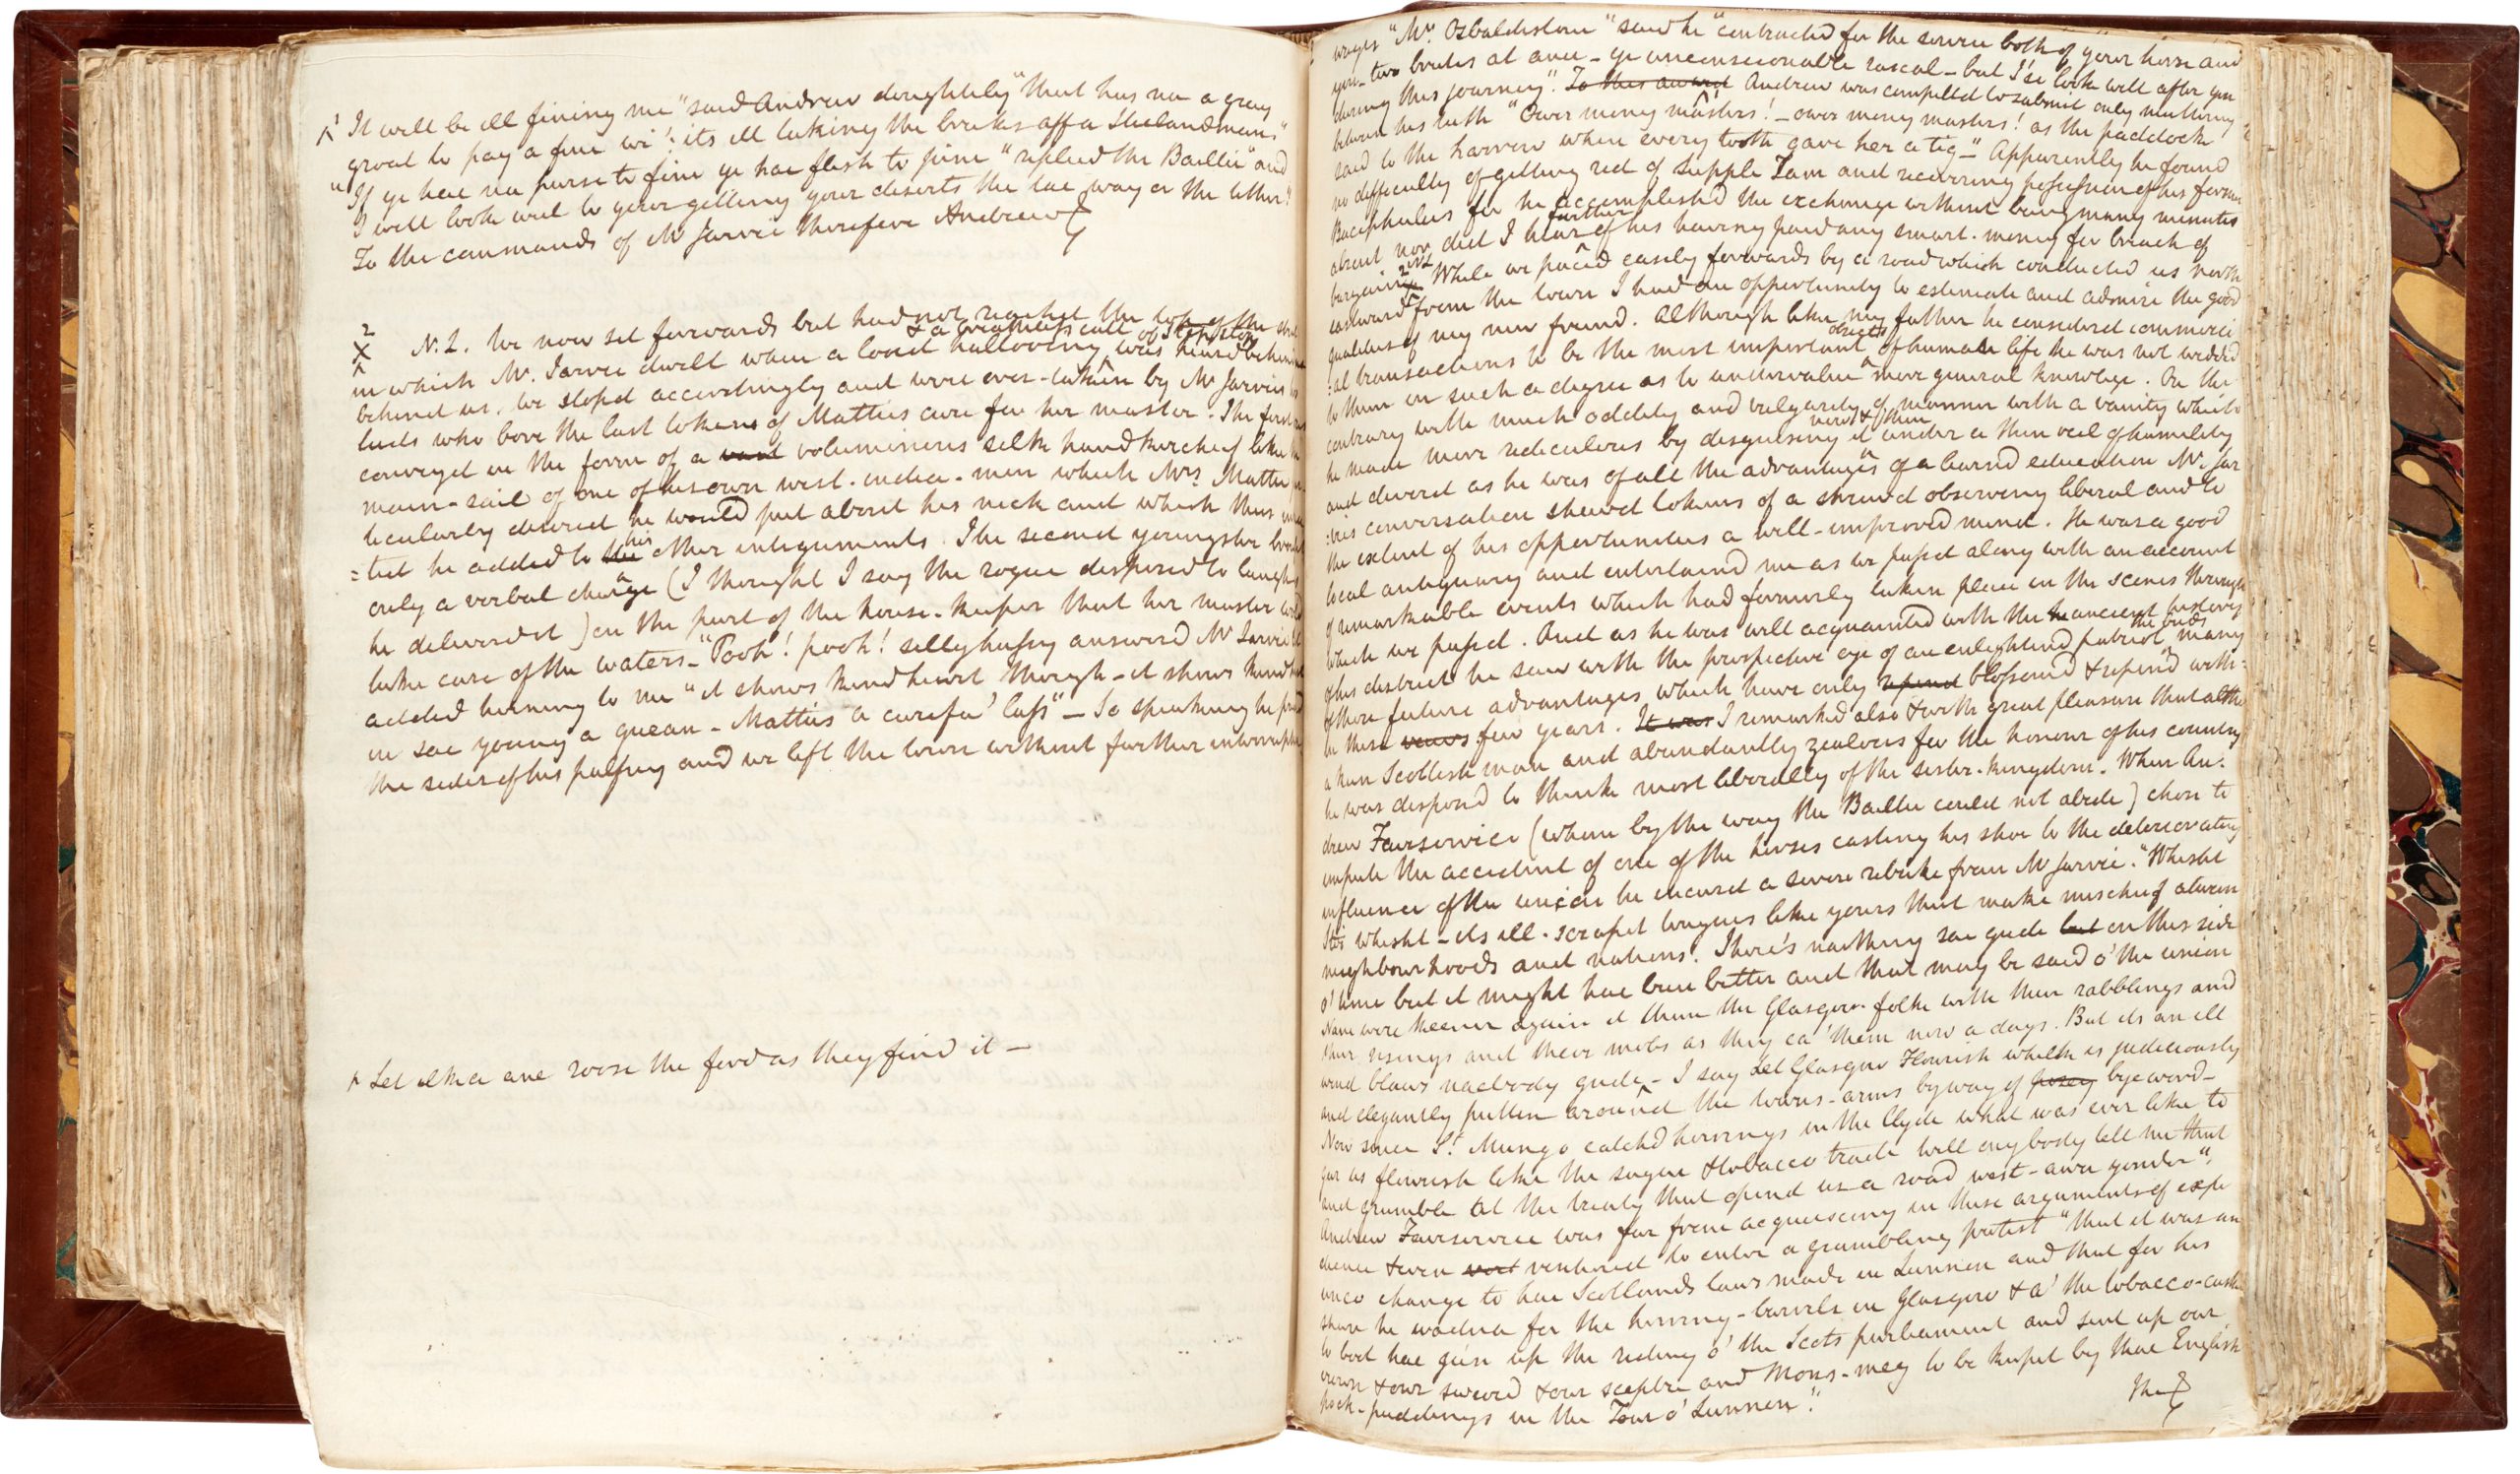 1 It will be ill fining me" said Andrew doughtily "that has na a gray
groat to pay a fine wi'. its ill taking the breeks aff a Hielandman."
"If ye hae na purse to fine ye hae flesh to pine" replied the Baillie "and
I will look weel to your getting your deserts the tae way or the tither."
To the commands of Mr Jarvie therefore Andrew
2 N.L. We now set forwards but had not reached the top of the
& a breathless call of Stop Stop
in which Mr. Jarvie dwelt when a loud hallooing was heard behind
behind us. We stopd accordingly and were over-taken by Mr Jarvies
lads who bore the last tokens of Matties care for her master. The first
conveyed in the form of a vast voluminous silk handkerchief like the
main-sail of one of his own west-india-men which Mrs. Mattie
ticularly desired he would put about his neck and which thus
=ted he added to the his other integuments. The second youngster
only a verbal charge (I thought I saw the rogue disposed to laugh as
he deliverd it) on the part of the house-keeper that her master
take care of the waters_ "Pooh! pooh! silly hussy answered Mr Jarvie
added turning to me "it shows kind heart though - it shows kind
in sae young a quean - Mattie's a carefu' lass" - So speaking he
the sides of his palfrey and we left the town without further interruption
Let ilka ane roose the ford as they find it -
wages "Mr. Osbaldistone" said he "contracted for the service both of your horse and
you - two brutes at anes - ye unconscionable rascal - but I'se look weel after you
during this journey". To this award Andrew was compelld to submit only muttering
between his teeth "Ower mony masters! - ower mony masters! as the paddock
said to the harrow when every tooth gave her a tig_" Apparently he found
no difficulty of getting red of Supple Tam and recovering possession of his former
Bucephalus for he accomplishd the exchange without being many minutes
further
absent nor did I hear of his having paid any smart-money for breach of
bargain. 2 N.L While we paced easily forwards by a road which conducted us north
eastward from the town I had an opportunity to estimate and admire the good
qualities of my new friend. Although like my father he considered commerci
objects
:al transactions to be the most important of human life he was not wedded
to them in such a degree as to undervalue more general knowlege. On the
contrary with much oddity and vulgarity of manner with a vanity which
now & then
he made more ridiculous by disguising it under a thin veil of humility
and devoid as he was of all the advantages of a learnd education Mr Jar
:vies conversation shewd tokens of a shrewd observing liberal and to
the extent of his opportunities a well-improved mind. He was a good
local antiquary and entertained me as we passd along with an account
of remarkable events which had formerly taken place in the scenes through
which we passd. And as he was well acquainted with the ancient history
the buds
of his district he saw with the prospective eye of an enlightend patriot many
of those future advantages which have only ripend blossomd & ripend with-
in these few years. It was I remarked also & with great pleasure that altho
a keen Scottishman and abundantly zealous for the honour of his country
he was disposed to think most liberally of the sister-kingdom. When An-
drew Fairservice (whom by the way the Baillie could not abide) chose to
impute the accident of one of the horses casting his shoe to the deteriorating
influence of the union he incurd a severe rebuke from Mr Jarvie. "Whisht
Sir whisht - its ill-scrapit tongues like yours that make mischief atween
neighbourhoods and nations. There's naething sae gude but on this side
o' time but it might hae been better and that may be said o' the union
Nane were keener again it than the Glasgow folk with their rabblings and
their risings and their mobs as they ca' them now a days. But its an ill
wind blaws naebody gude - I say Let Glasgow Flourish whilk is judiciously
and elegantly putten around the towns-arms by way of posey byeword -
Now since St. Mungo catchd herrings in the Clyde what was ever like to
gar us flourish like the sugar & tobacco trade will ony body tell me that
and grumble at the treaty that opend us a road west-awa yonder".
Andrew Fairservice was far from acquiescing in these arguments of expe
dience & even ventured to enter a grumbling protest "that it was an
unco change to hae Scotlands laws made in Lunnon and that for his
share he wadna for the herring-barrels in Glasgow & a' the tobacco-casks
to boot hae gien up the riding o' the Scots parliament and sent up our
crown & our sword & our sceptre and Mons-meg to be keepit by thae English
pock-puddings in the Tour o' Lunnon."